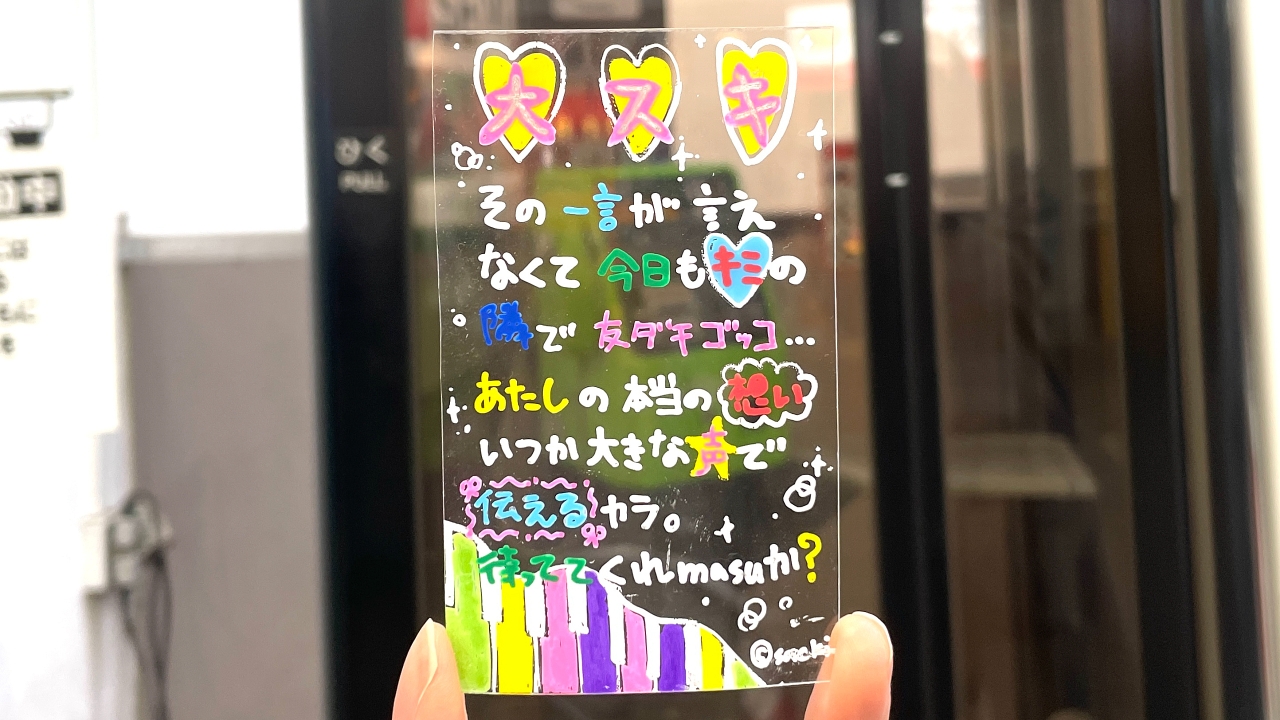 大スキ
その一言が言え
なくて今日もキミの
隣で友ダチゴッコ…
あたしの本当の想い
いつか大きな声で
伝えるカラ。
待っててくれmasuか?
ひく
PULL